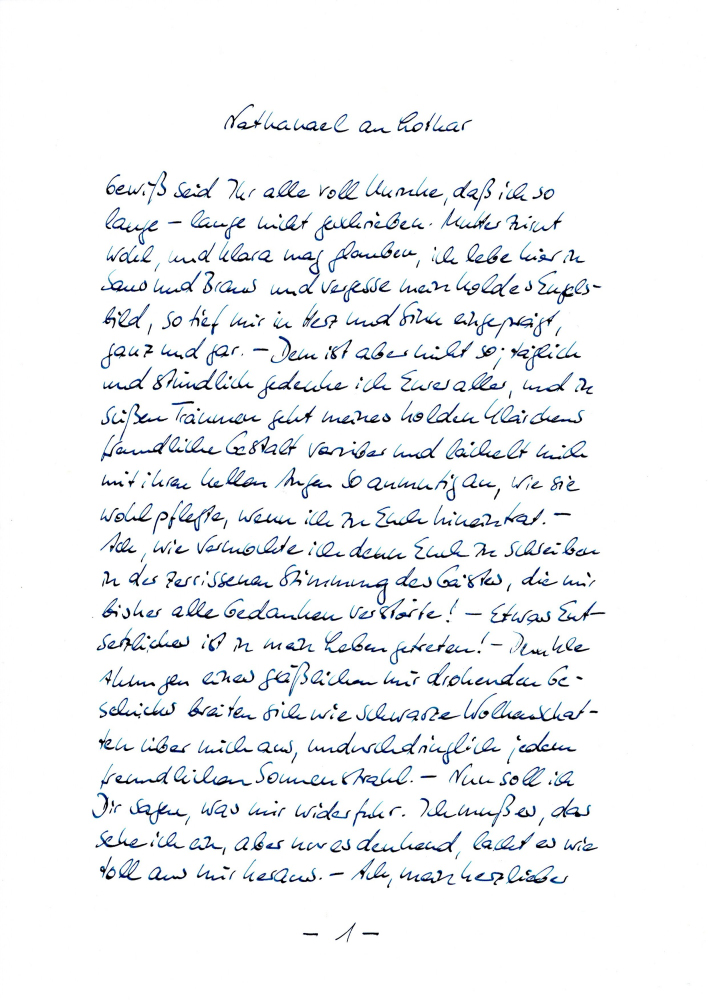 Nathanael an Lothar
Gewiß seid Ihr alle voll Unruhe, daß ich so
lange – lange nicht geschrieben. Mutter zürnt
wohl, und Klara mag glauben, ich lebe hier in
Saus und Braus und vergesse mein holdes Engels-
bild, so tief mir in Herz und Sinn eingeprägt,
ganz und gar. – Dem ist aber nicht so; täglich
und stündlich gedenke ich Eurer aller, und in
süßen Träumen geht meines holden Klärchens
freundliche Gestalt vorüber und lächelt mich
mit ihren hellen Augen so anmutig an, wie sie
wohl pflegte, wenn ich zu Euch hineintrat. –
Ach, wie vermochte ich denn Euch zu schreiben
in der zerrissenen Stimmung des Geistes, die mir
bisher alle Gedanken verstörte! – Etwas Ent-
setzliches ist in mein Leben getreten! – Dunkle
Ahnungen eines gräßlichen mir drohenden Ge-
schicks breiten sich wie schwarze Wolkenschat-
ten über mich aus, undurchdringlich jedem
freundlichen Sonnenstrahl. – Nun soll ich
Dir sagen, was mir widerfuhr. Ich muß es, das
sehe ich ein, aber nur es denkend, lacht es wie
toll aus mir heraus. – Ach, mein herzlieber
– 1 –